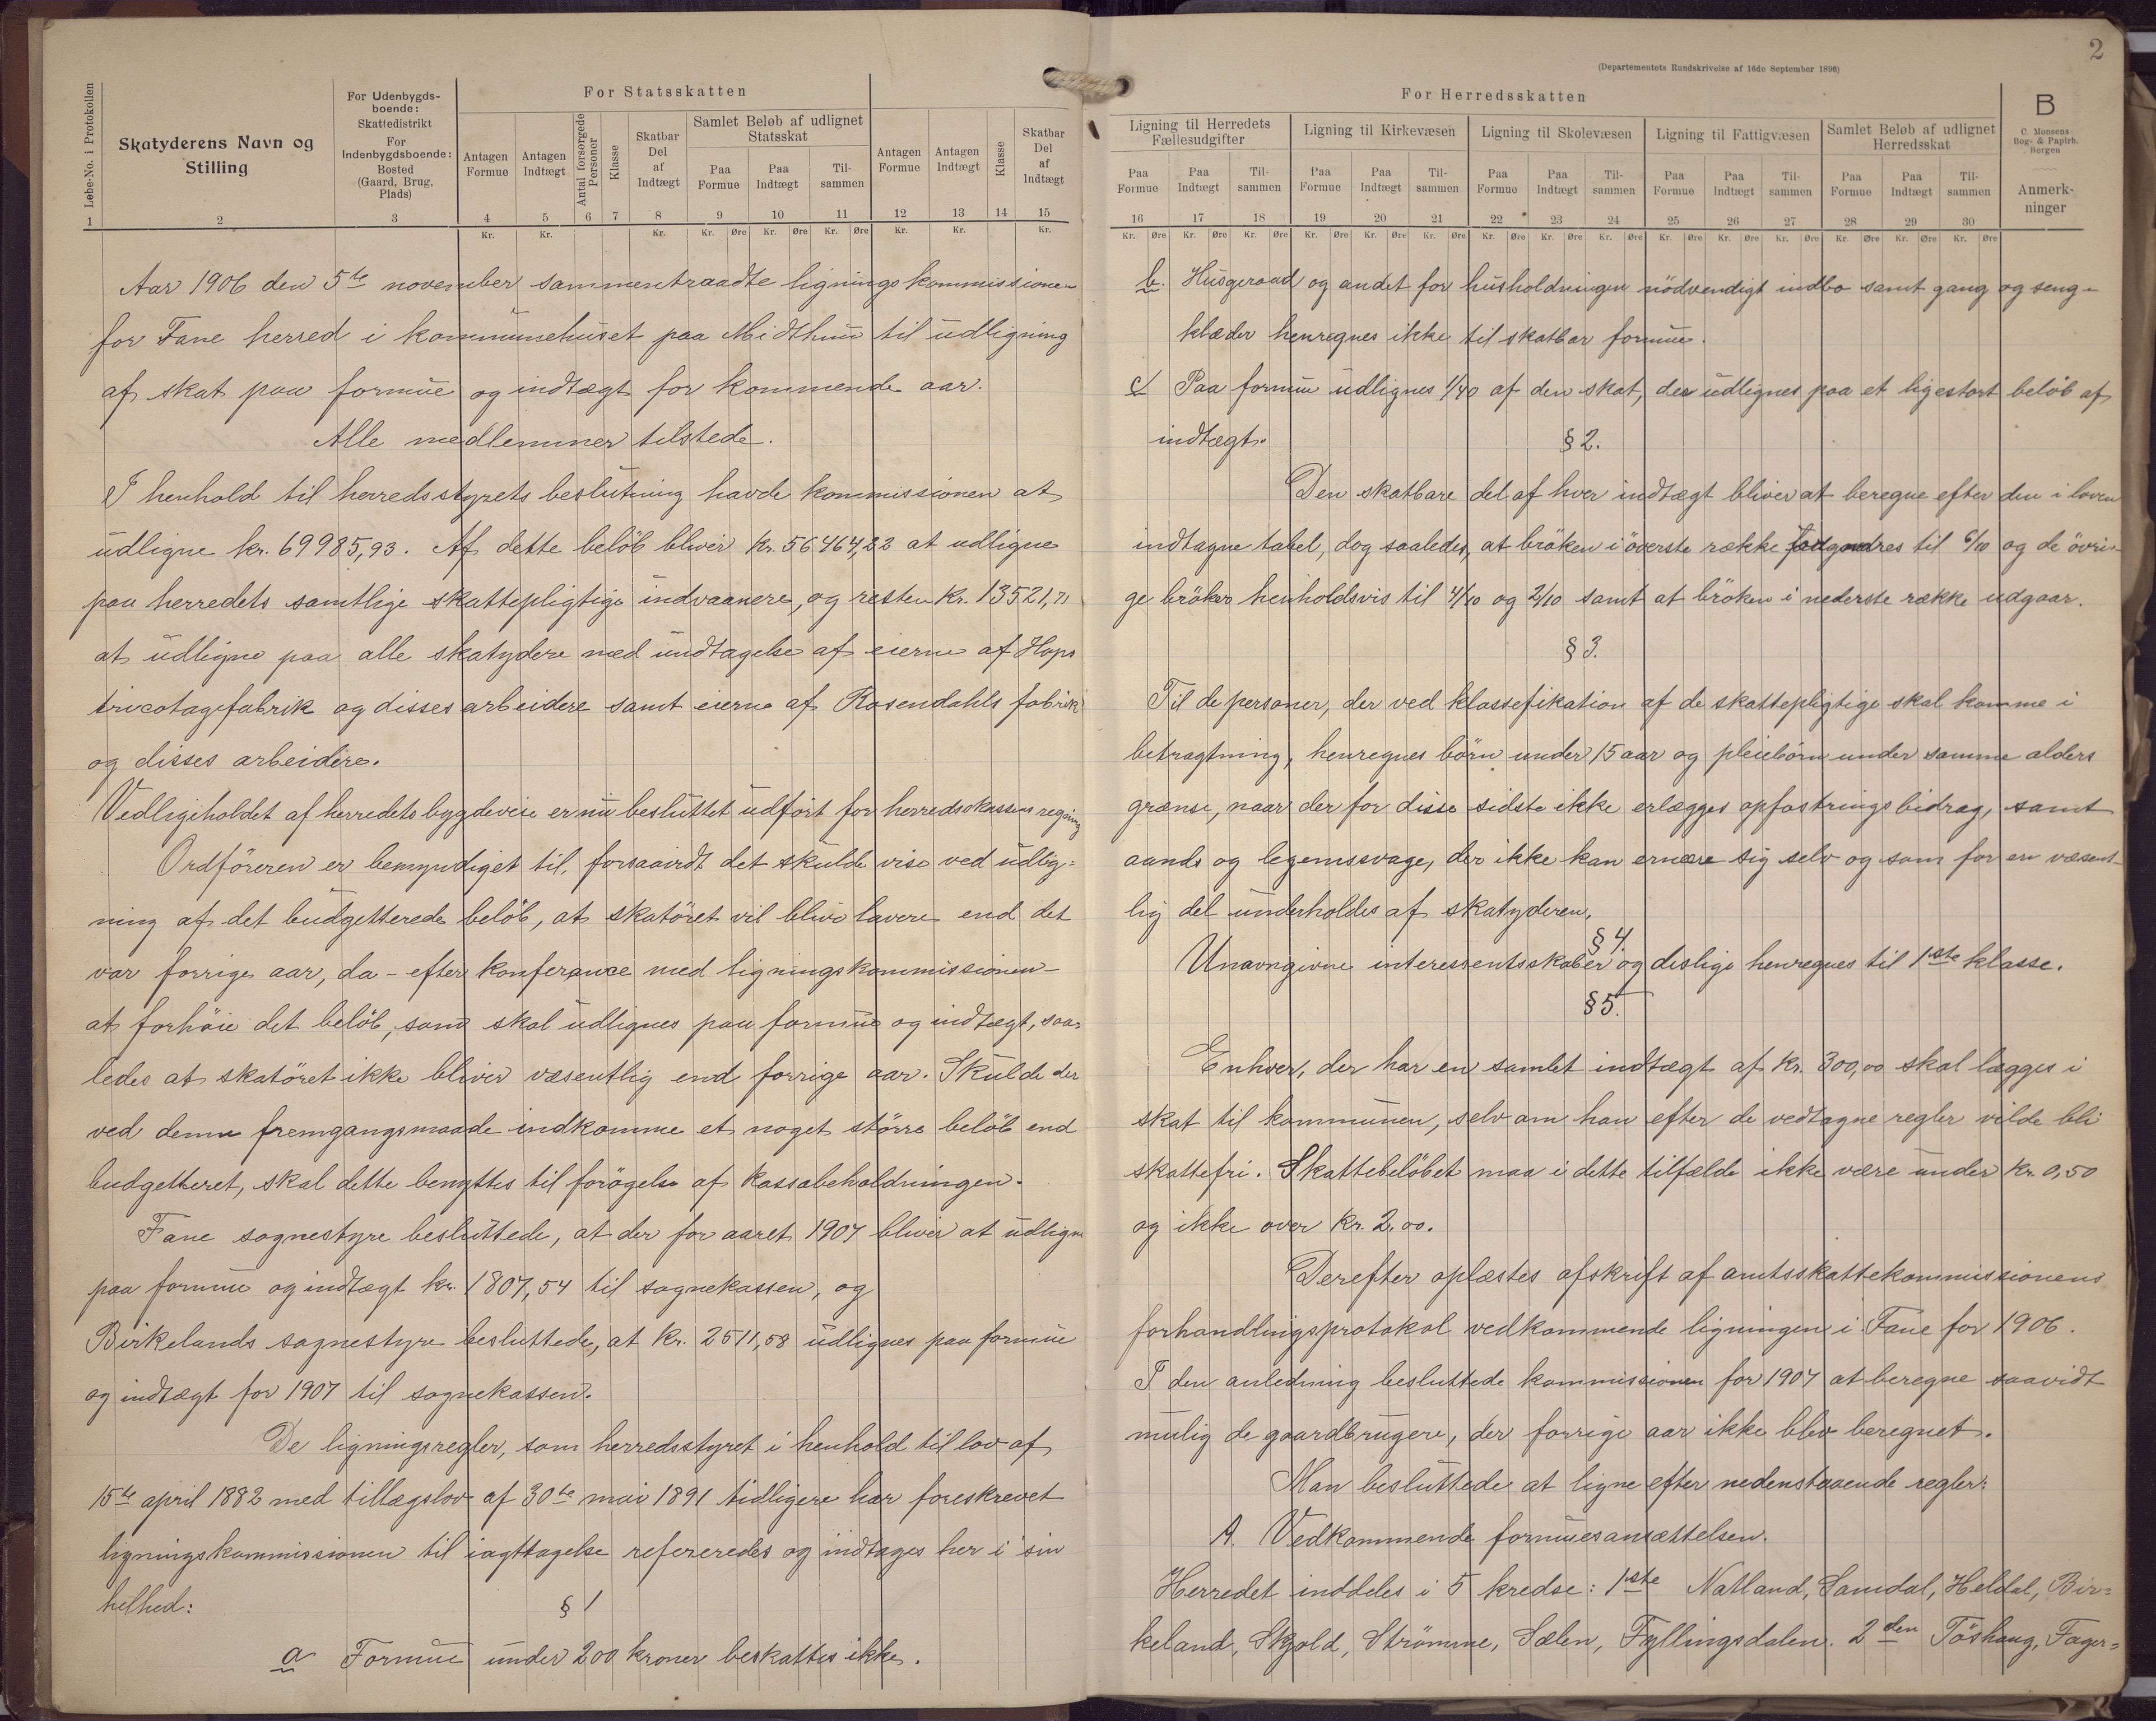 2
(Departementets Rundskrivelse af 16de September 1896)
Løbe-No. i Protokollen
Skatyderens Navn og
Stilling
For Udenbygds-
boende:
Skattedistrikt
For
Indenbygdsboende:
Bosted
(Gaard, Brug,
Plads)
For Statsskatten
Antagen Formue
Antagen Indtægt
Antal forsørgede Personer
Klasse
Skatbar Del af Indtægt
Samlet Beløb af udlignet Statsskat
Paa Formue
Paa Indtægt
Til-sammen
Antagen Formue
Antagen Indtægt
Klasse
Skatbar Del af Indtægt
1 2 3 4 5 6 7 8 9 10 11 12 13 14 15
Kr. Kr. Kr. Kr. Øre Kr. Øre Kr. Øre Kr. Kr. Kr.
Aar 1906 den 5te november sammentraadte ligningskommissionen
for Fane herred i kommunehuset paa Midthun til udligning
af skat paa formue og indtægt for kommende aar.
Alle medlemmer tilstede.
I henhold til herredsstyrets beslutning havde kommissionen at
udligne kr. 69985,93. Af dette beløb bliver kr. 56464,22 at udligne
paa herredets samtlige skattepligtige indvaanere, og resten kr. 13521,71
at udligne paa alle skatydere med undtagelse af eierne af Hops
tricotagefabrik og disses arbeidere samt eierne af Rosendahls fabrik
og disses arbeidere.
Vedligeholdet af herredets bygdeveie er nu besluttet udført for herredskassens regning
Ordföreren er bemyndiget til, forsaavidt det skulde vise ved udlig=
ning af det budgetterede beløb, at skatöret vil blive lavere end det
var forrige aar, da - efter konferance med ligningskommissionen -
at forhöie det belöb, som skal udlignes paa formue og indtægt, saa=
ledes at skatöret ikke bliver væsentlig end forrige aar. Skulde der
ved denne fremgangsmaade indkomme et noget större belöb end
budgetteret, skal dette benyttes til forögelse af kassabeholdningen.
Fane sognestyre besluttede, at der for aaret 1907 bliver at udligne
paa formue og indtægt kr. 1807,54 til sognekassen, og
Birkelands sognestyre besluttede, at kr. 2511,58 udlignes paa formue
og indtægt for 1907 til sognekassen.
De ligningsregler, som herredsstyret i henhold til lov af
15te april 1882 med tillægslov af 30te mai 1891 tidligere har foreskrevet
ligningskommissionen til iagttagelse refereredes og indtages her i sin
helhed:
§ 1
a Formue under 200 kroner beskattes ikke.
For Herredsskatten
Ligning til Herredets Fællesudgifter
Ligning til Kirkevæsen
Ligning til Skolevæsen
Ligning til Fattigvæsen
Samlet Beløb af udlignet Herredsskat
B
C. Monsens
Bog- & Papirh.
Bergen
Anmerk-
ninger
Paa Formue Paa Indtægt Til-sammen Paa Formue Paa Indtægt Til-sammen Paa Formue Paa Indtægt Til-sammen Paa Formue Paa Indtægt Til-sammen Paa Formue Paa Indtægt Til-sammen
16 17 18 19 20 21 22 23 24 25 26 27 28 29 30
Kr. Øre Kr. Øre Kr. Øre Kr. Øre Kr. Øre Kr. Øre Kr. Øre Kr. Øre Kr. Øre Kr. Øre Kr. Øre Kr. Øre Kr. Øre Kr. Øre Kr. Øre
b. Husgeraad og andet for husholdningen nödvendigt indbo samt gang og seng=
klæder henregnes ikke til skatbar formue.
c/ Paa formue udlignes 1/40 af den skat, der udlignes paa et ligestort belöb af
indtægt.
§ 2.
Den skatbare del af hver indtægt bliver at beregne efter den i loven
indtagne tabel, dog saaledes, at bröken i överste række til 6/10 og de övri=
ge bröker henholdsvis til 4/10 og 2/10 samt at bröken i nederste række udgaar.
§ 3.
Til de personer, der ved klassefikation af de skattepligtige skal komme i
betragtning, henregnes börn under 15 aar og pleiebörn under samme alders
grænse, naar der for disse sidste ikke erlægges opfostringsbidrag, samt
aands og legemssvage, der ikke kan ernære sig selv og som for en væsent-
lig del underholdes af skatyderen.
§ 4.
Unavngivne interessentskaber og deslige henregnes til 1ste klasse.
§ 5.
Enhver, der har en samlet indtægt af kr. 300,00 skal lægges i
skat til kommunen, selv om han efter de vedtagne regler vilde bli
skattefri. Skattebelöbet maa i dette tilfælde ikke være under kr. 0,50
og ikke over kr. 2,00.
Derefter oplæstes afskrift af amtsskattekommissionens
forhandlingsprotokol vedkommende ligningen i Fane for 1906.
I den anledning besluttede kommissionen for 1907 at beregne saavidt
mulig de gaardbrugere, der forrige aar ikke blev beregnet.
Man besluttede at ligne efter nedenstaaende regler:
A. Vedkommende formuesansættelsen.
Herredet inddeles i 5 kredse: 1ste Natland, Samdal, Heldal, Bir=
keland, Skjold, Strömme, Sælen, Fyllingsdalen. 2den Töshaug, Fager=